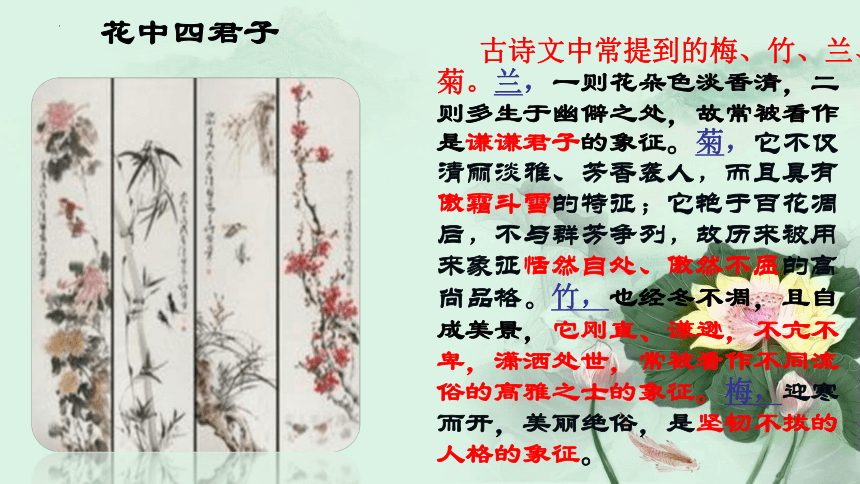 花中四君子
古诗文中常提到的梅、竹、兰、
菊。兰，一则花朵色淡香清，二
则多生于幽僻之处，故常被看作
是谦谦君子的象征。菊，它不仅
清丽淡雅、芳香袭人，而且具有
傲霜斗雪的特征；它艳于百花凋
后，不与群芳争列，故历来被用
来象征恬然自处、傲然不屈的高
尚品格。竹，也经冬不凋，且自
成美景，它刚直、谦逊，不亢不
卑，潇洒处世，常被看作不同流
俗的高雅之士的象征。梅，迎寒
而开，美丽绝俗，是坚韧不拔的
人格的象征。